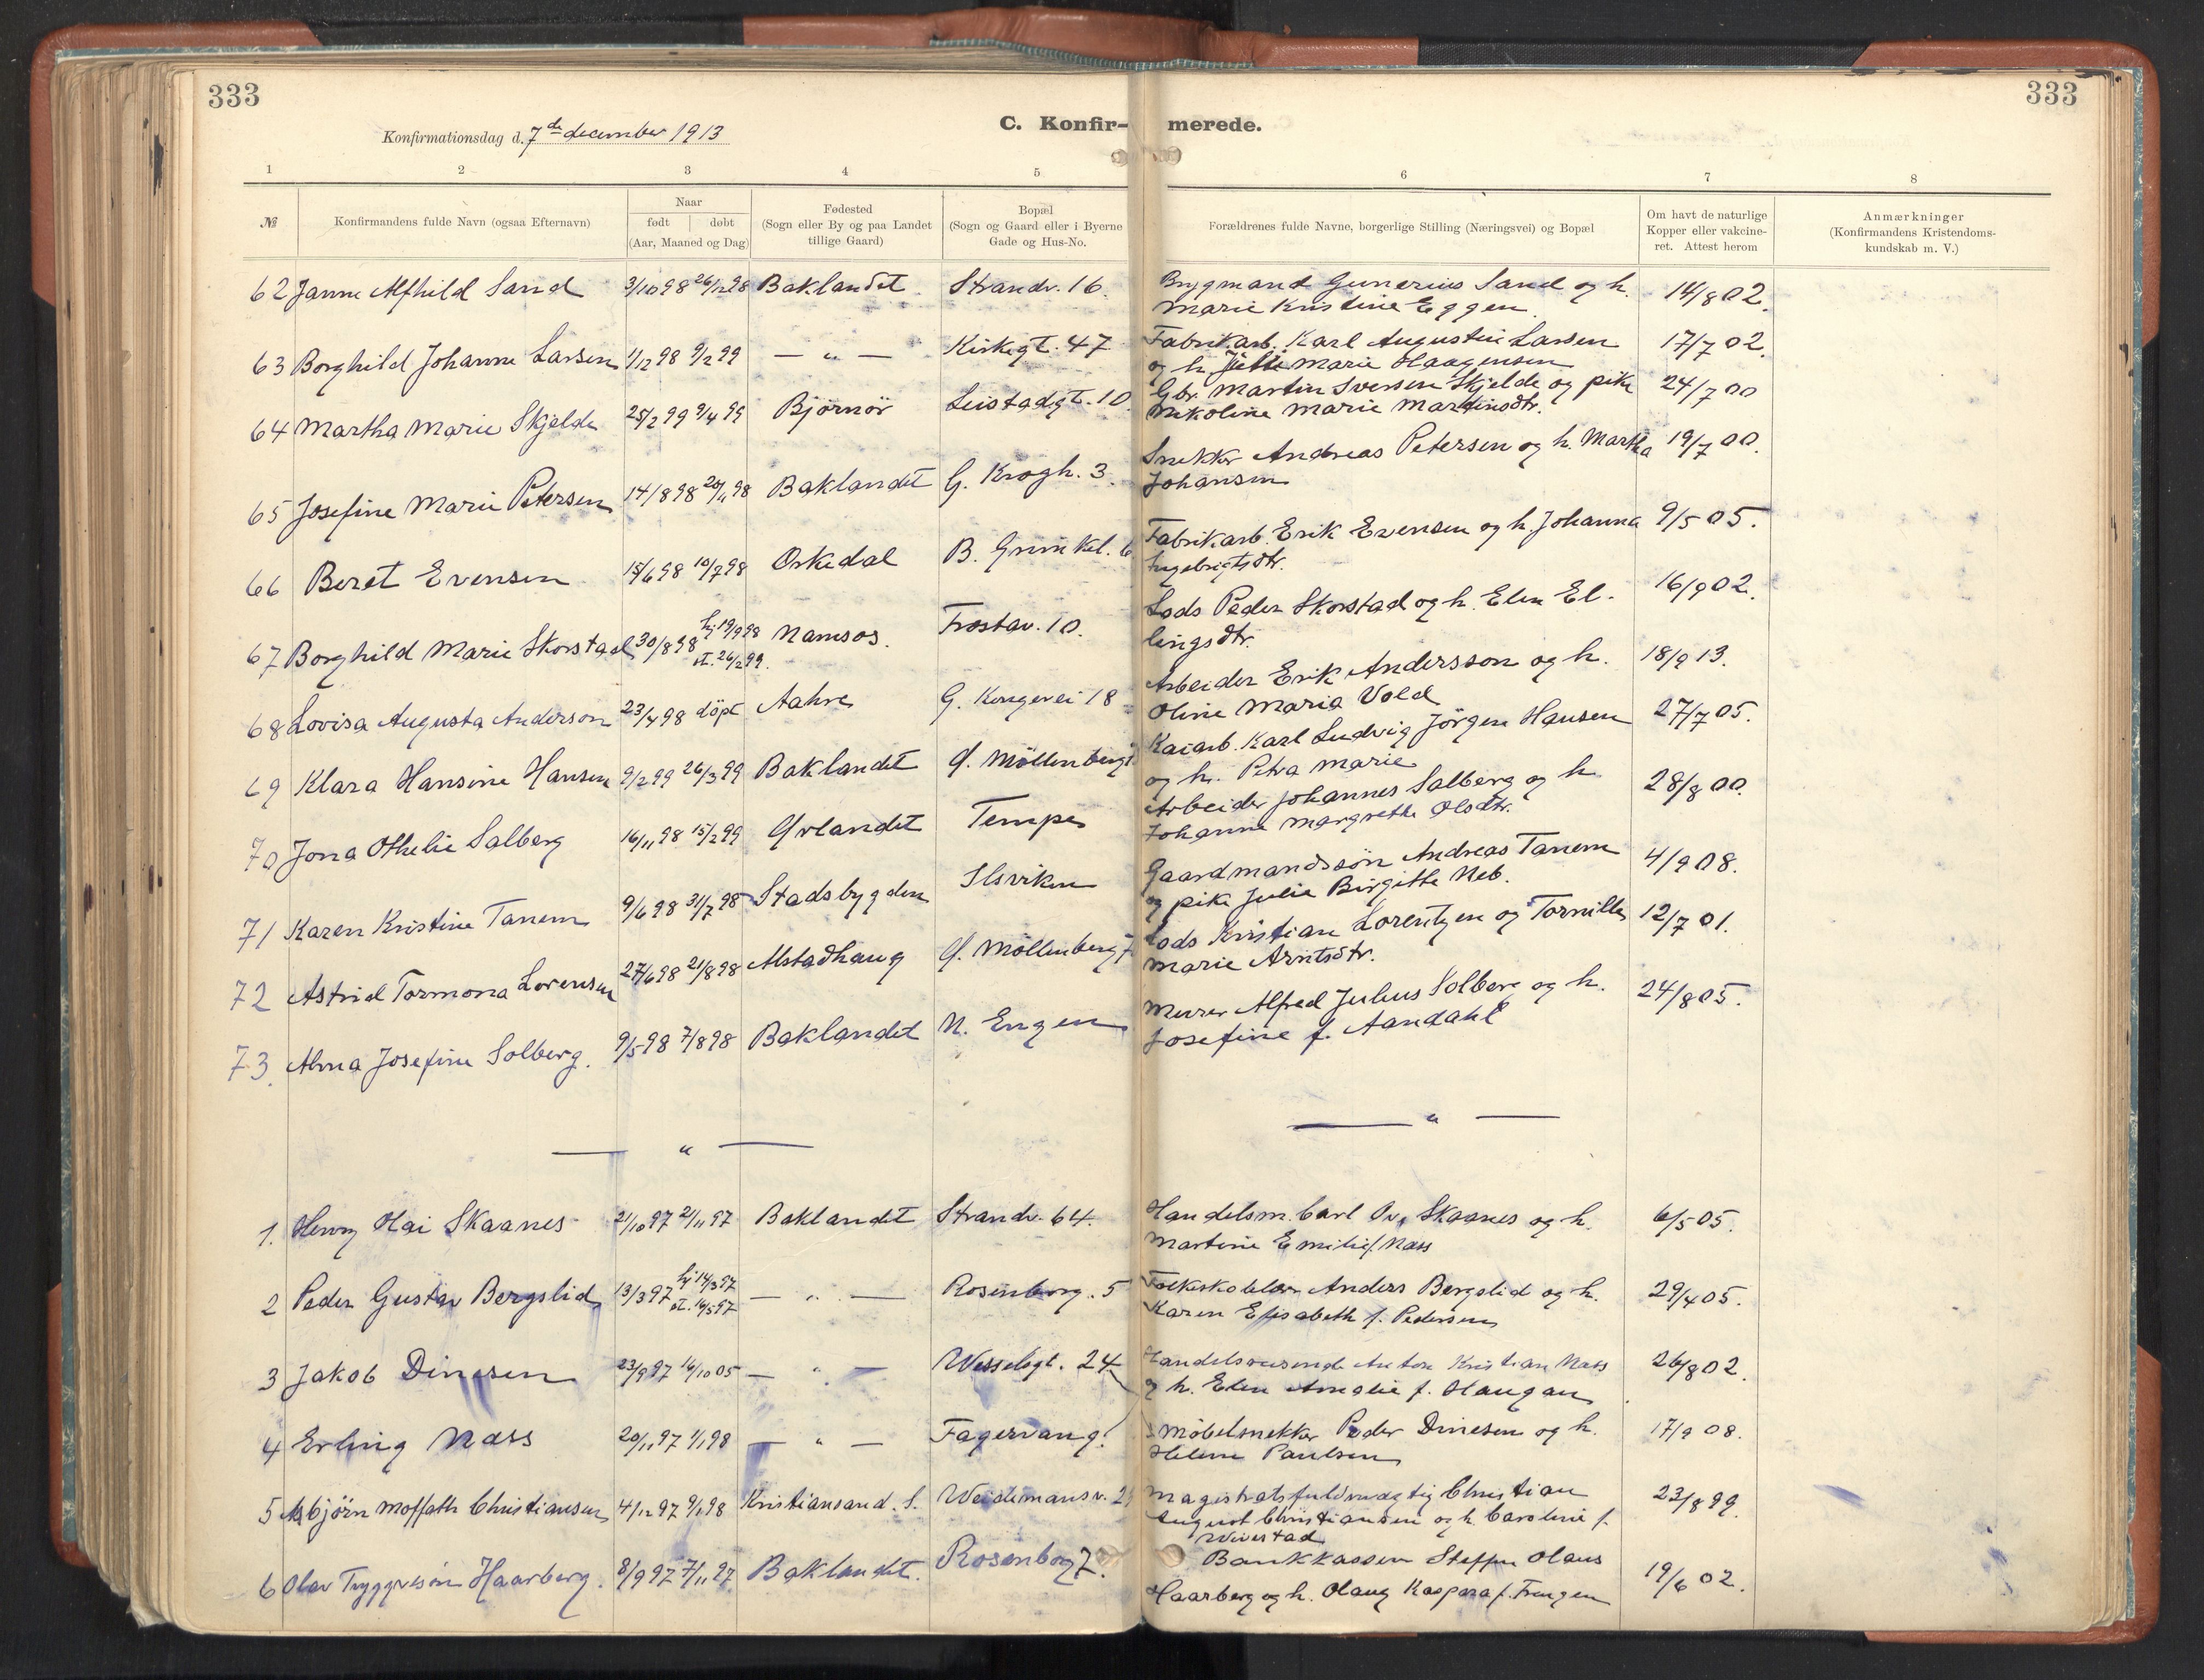 333
333
Konfirmationsdag d. 7de december 1913
C. Konfir- merede.
1 2 3 4 5 6 7 8
№ Konfirmandens fulde Navn (ogsaa Efternavn) Naar født døbt (Aar, Maaned og Dag) Fødested (Sogn eller By og paa Landet tillige Gaard) Bopæl (Sogn og Gaard eller i Byerne Gade og Hus-No. Forældrenes fulde Navne, borgerlige Stilling (Næringsvei) og Bopæl Om havt de naturlige Kopper eller vakcineret. Attest herom Anmærkninger (Konfirmandens Kristendomskundskab m. V.)
62 Janna Alfhild Sand 3/10 98 26/12 98 Baklandet Strandv. 16. Brygmand Gunerius Sand og h. 14/8 02.
Marie Kristine Eggen.
63 Borghild Johanne Larsen 1/12 98 9/2 99 — " — Kirkegt. 47 Fabrikarb. Karl Augustin Larsen 17/7 02.
og h. Marie Haagensen
64 Martha Marie Skjelde 25/2 99 9/4 99 Bjørnør Leistadgt. 10. Gbr. Martin Iversen Skjelde og pike 24/7 00
Nikoline Marie Martinsdtr.
65 Josefine Marie Petersen 14/8 98 20/11 98 Baklandet G. Krogh. 3. Snekker Andreas Petersen og h. Martha 19/7 00.
Johansen
66 Beret Evensen 15/6 98 10/7 98 Orkedal B. Grimkel. 6 Fabrikarb. Erik Evensen og h. Johanna 9/5 05.
Ingebrigtsdtr.
67 Borghild Marie Skorstad 30/8 98 hj 19/9 98 st. 26/2 99. Namsos. Frostav. 10. Lods Peder Skorstad og h. Elen El- 16/9 02.
lingsdtr.
68 Lovisa Augusta Anderson 23/4 98 döpt Aahre G. Kongevei 18 Arbeider Erik Andersson og h. 18/9 13.
Oline Maria Vold
69 Klara Hansine Hansen 9/2 99 26/3 99 Baklandet Ø. Möllenberg Kaiarb. Karl Ludvig Jörgen Hansen 27/7 05.
og h. Petra Marie
70 Jona Othelie Salberg 16/11 98 15/2 99 Ørlandet Tempe Arbeider Johannes Salberg og h. 28/8 00.
Johanne Margrethe Olsdtr.
71 Karen Kristine Tanem 9/6 98 31/7 98 Stadsbygden Ilsviken Gaardmandssön Andreas Tanem 4/9 08.
og pike Julie Birgitte Neb.
72 Astrid Tormona Lorensen 27/6 98 21/8 98 Alstadhaug Ø. Möllenberg 7 Lods Kristian Lorentzen og Tornille 12/7 01.
Marie Arntsdtr.
73. Alma Josefine Solberg. 9/5 98 7/8 98 Baklandet N. Engen Murer Alfred Julius Solberg og h. 24/8 05.
Josefine f. Aandahl
— " — — " —
1. Henry Hai Skaanes 21/10 97 21/11 97 Baklandet Strandv. 64. Handelsm. Carl Ov. Skaanes og h. 6/5 05.
Martine Emilie f. Næss
2 Peder Gustav Bergslid 13/3 97 hj 14/3 97 st. 16/5 97 — " — Rosenborg. 5 Folkeskolelær. Anders Bergslid og h. 29/4 05.
Karen Elisabeth f. Pedersen
3 Jakob Dinesen 23/9 97 16/10 05 — " — Wesselsgt. 24 Handelsreisende Anton Kristian Næss 26/8 02.
og h. Elen Amalie f. Haugan
4 Erling Næss 20/11 97 1/1 98 — " — Fagervang. Möbelsnekker Peder Dinesen og h. 17/9 08.
Helene Paulsen
5 Asbjörn Moffath Christiansen 4/12 97 9/1 98 Kristiansand. S. Weidemansv. 2 Magistratsfuldmægtig Christian 23/8 99.
August Christiansen og h. Caroline f.
Wivestad
6 Olav Tryggvesøn Haarberg. 8/9 97 7/11 97 Baklandet. Rosenborg 7. Bankkassen Steffen Olaus 19/6 02.
Haarberg og h. Olaug Kaspara f. Trengen